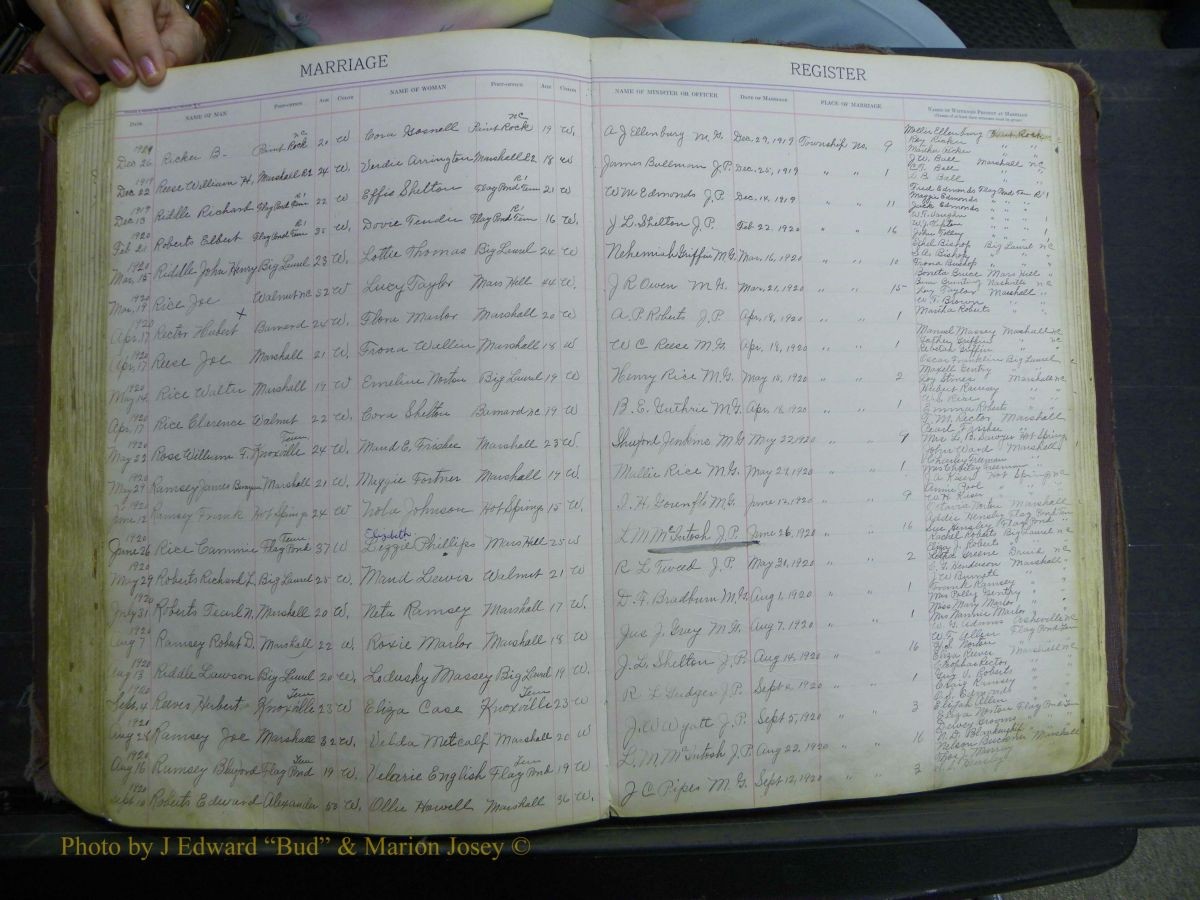 MARRIAGE
REGISTER
DATE NAME OF MAN POST-OFFICE AGE COLOR NAME OF WOMAN POST-OFFICE AGE COLOR NAME OF MINISTER OR OFFICER DATE OF MARRIAGE PLACE OF MARRIAGE NAMES OF WITNESSES PRESENT AT MARRIAGE
1919 Dec 26 Ricker B- Paint Rock NC 20 W Cora Gosnell Paint Rock NC 19 W. A J Ellenburg M.G. Dec. 29, 1919 Township No. 9 Mollie Ellenburg Paint Rock
Roy Ricker " "
Martha Ricker " "
1919 Dec 22 Reese William H. Marshall R2 24 W. Verdie Arrington Marshall R2 18 W James Bullman J.P. Dec. 25, 1919 " " 1 J.W. Ball Marshall NC
C.T. Ball " "
L B Ball " "
1919 Dec 13 Riddle Richard Flag Pond Tenn R1 22 W Effie Shelton Flag Pond Tenn R1 21 W W M Edmonds J.P. Dec. 14, 1919 " " 11 Fred Edmonds Flag Pond Ten R1
Maggie Edmonds " " "
Edmonds " " "
1920 Feb 21 Roberts Elbert Flag Pond Tenn R1 35 W. Dovie Flag Pond Tenn R1 16 W, J L Shelton J.P. Feb 22, 1920 " " 16 W.R. Vaughn " " 1
W.J. Tipton " "
John Tolley " " 1
1920 Mar, 15 Riddle John Henry Big Laurel 23 W. Lottie Thomas Big Laurel 24 W Nehemiah Griffin M.G. Mar, 16, 1920 " " 10 Ethel Bishop Big Laurel NC
S.A. Bishop " "
Bishop " "
1920 Mar, 19 Rice Joe Walnut NC 52 W Lucy Taylor Mars Hill 44 W. J R Owen M.G. Mar, 21, 1920 " " 15 Bonita Bruce Mars Hill "
Nashville NC
Taylor Marshall "
1920 Apr, 17 Rector Hubert X Barnard 24 W. Flora Marlor Marshall 20 W A. P. Roberts J.P. Apr, 18, 1920 " " 1 W.F. Brown " "
Martha Roberts " "
1920 Apr, 17 Reese Joe Marshall 21 W. Frona Wallin Marshall 18 W W C Reese M.G. Apr, 18, 1920 " " 1 Manuel Massey Marshall NC
Griffin " NC
Griffin "
1920 May 14 Rice Walter Marshall 19 W Emeline Norton Big Laurel 19 W Henry Rice M.G. May 15, 1920 " " 2 Oscar Franklin Big Laurel
Gentry "
Roy Stines Marshall NC
1920 Apr, 17 Rice Clarence Walnut 22 W. Cora Shelton Barnard NC 19 W B. E. Guthrie M.G. Apr, 18, 1920 " " 1 Hubert Ramsey " "
W.B. Rice " "
Emma Roberts " "
1920 May 22 Rose William F. Knoxville Tenn 24 W. Maud E, Frisbee Marshall 23 W. Shuford Jenkins M.G May 22 1920 " " 9 Rector Marshall
Pearl Frisbee " "
Mrs L. B. Sawyer Hot Springs
1920 May 29 Ramsey James Marshall 21 W. Maggie Fortner Marshall 17 W. Mallie Rice M.G. May 29, 1920 " " 1 John Ward Marshall
Charley Freeman
Mrs Charley Freeman " "
1920 June 12 Ramsey Frank Hot Springs 24 W Nola Johnson Hot Springs 15 W. June 12, 1920 " " 9 J A Riser Hot Springs NC
W H Riser " "
1920 June 26 Rice Cammie Flag Pond Tenn 37 W Elizabeth Lizzie Phillips Mars Hill 25 W L M McIntosh J.P. June 26, 1920 " " 16 Norton Marshall
Hensley Flag Pond Ten
Lee Hensley Flag Pond "
1920 May 29 Roberts Richard L. Big Laurel 25 W. Maud Lewis Walnut 21 W R L Tweed J.P. May 31, 1920 " " 2 Rachel Roberts Big Laurel NC
Roberts " "
Greene Druid NC
1920 July 31 Roberts Tearl N. Marshall 20 W. Neta Ramsey Marshall 17 W. D. F. Bradburn M.G. Aug 1, 1920 " " 1 Henderson Marshall "
J W Burnett " "
Frank Ramsey " "
1920 Aug 7 Ramsey Robert D. Marshall 22 W. Rosie Marlor Marshall 18 W Jas J. Gray M.G. Aug 7, 1920 " " 1 Mrs Polly Gentry " "
Miss Mary Marlor " "
Mrs Nannie Marlor " "
1920 Aug 13 Riddle Lawson Big Laurel 20 W. Lodusky Massey Big Laurel 19 W. J. L. Shelton J.P. Aug 14, 1920 " " 16 Adams Asheville NC
W.T. Allen Flag Pond Ten
Norton " "
1920 Sept. 4 Reeves Herbert Knoxville Tenn 23 W Eliza Case Knoxville Tenn 23 W R L Gudger J.P. Sept 4, 1920 " " 1 Eliza Reeves Marshall NC
Rector " "
Guy V. Roberts " "
1920 Aug 28 Ramsey Joe Marshall 32 W. Velda Metcalf Marshall 20 W J. W Wyatt J.P. Sept 5, 1920 " " 3 Craig Ramsey " "
Edmonds " "
Elijah Allen " "
1920 Aug 16 Ramsey Bluford Flag Pond Tenn 19 W. Velarie English Flag Pond Tenn 19 W L. M. McIntosh J.P Aug 22, 1920 " " 16 Eliza Norton Flag Pond Ten
Dewey Grooms " "
N.D. Blankenship " "
1920 Sept 10 Roberts Edward Alexander 50 W. Ollie Howell Marshall 36 W. J C Pipes M.G. Sept 12, 1920 " " 3 Nelson Buckner Marshall
Murray " "
Photo by J Edward “Bud” & Marion Josey ©